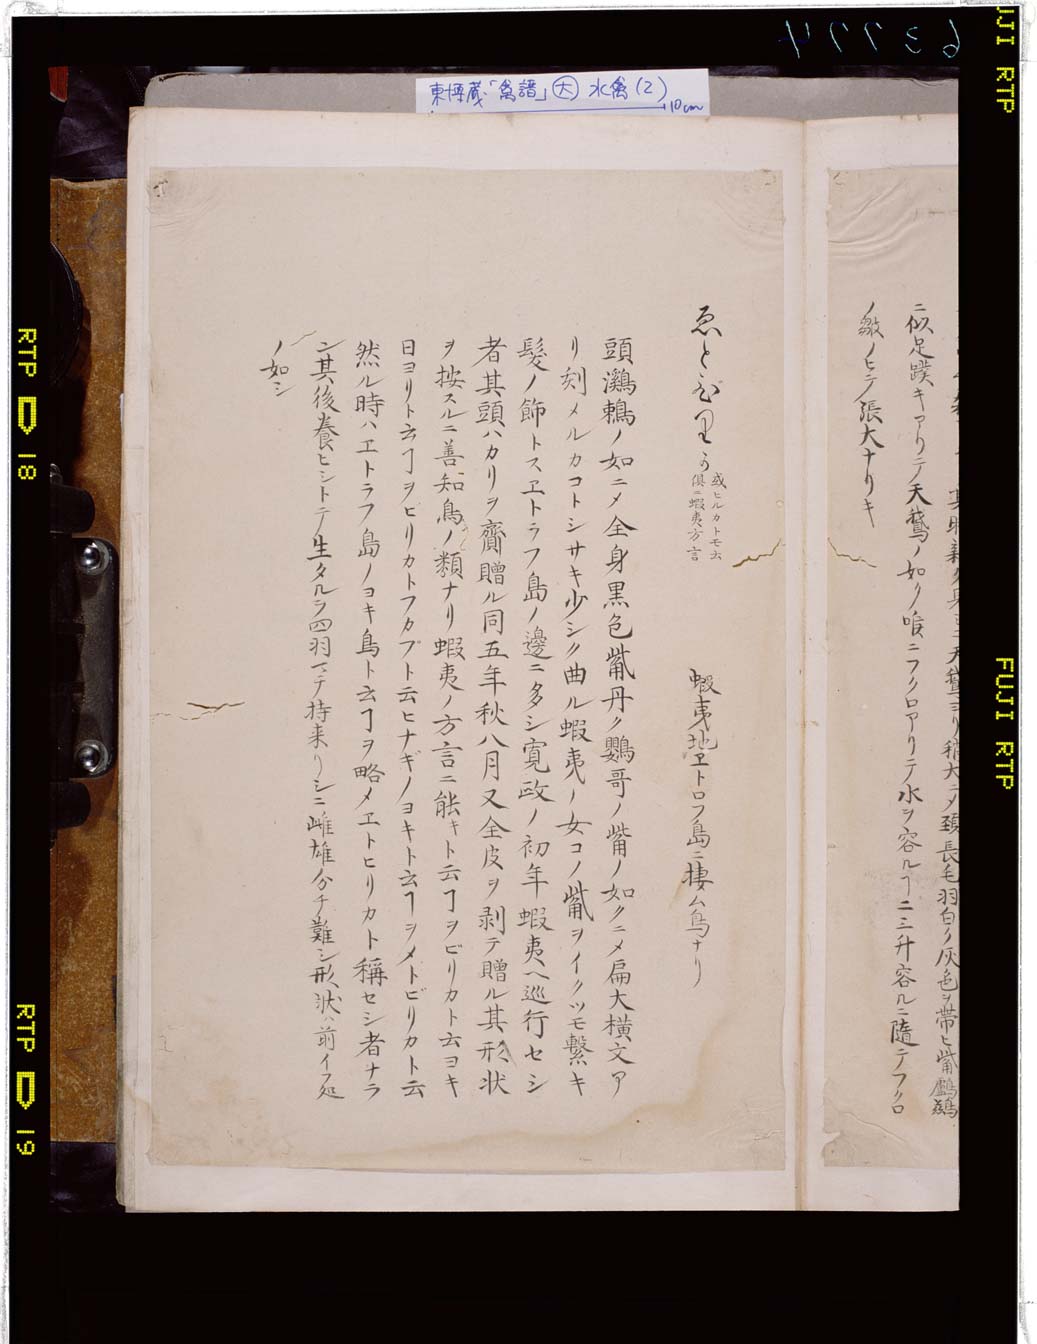 63774
東博蔵「禽譜」(大) 水禽(2)
10cm
其時
天鵞ヨリ稍大ニメ頚長毛羽白ク灰色ヲ帯ヒ觜鸕鷀
ニ似足蹼キアリテ天鵞ノ如ク喉ニフクロアリテ水ヲ容ルヿ二三升容ルニ隨テフクロ
ノ皺ノヒテ張大ナリキ
ゑとぴりか
或ヒルカトモ云
俱ニ蝦夷方言
蝦夷地ヱトロフ島ニ棲ム鳥ナリ
頭鸂鶒ノ如ニメ全身黒色觜丹ク鸚哥ノ觜ノ如クニメ扁大横文ア
リ刻メルカコトシサキ少シク曲ル蝦夷ノ女コノ觜ヲイクツモ繫キ
髮ノ飾トスヱトラフ島ノ邊ニ多シ寛政ノ初年蝦夷ヘ巡行セシ
者其頭ハカリヲ齎贈ル同五年秋八月又全皮ヲ剥テ贈ル其形状
ヲ按スルニ善知鳥ノ類ナリ蝦夷ノ方言ニ能キト云ヿヲビリカト云ヨキ
日ヨリト云ヿヲヒリカトフカプト云ヒナギノヨキト云ヿヲメトビリカト云
然ル時ハヱトラフ島ノヨキ鳥ト云ヿヲ略メヱトヒリカト稱セシ者ナラ
ン其後養ヒシトテ生タルヲ四羽マテ持来リシニ雌雄分チ難シ形状ハ前イフ処
ノ如シ
RTP 18
RTP 19
FUJI RTP
FUJI RTP